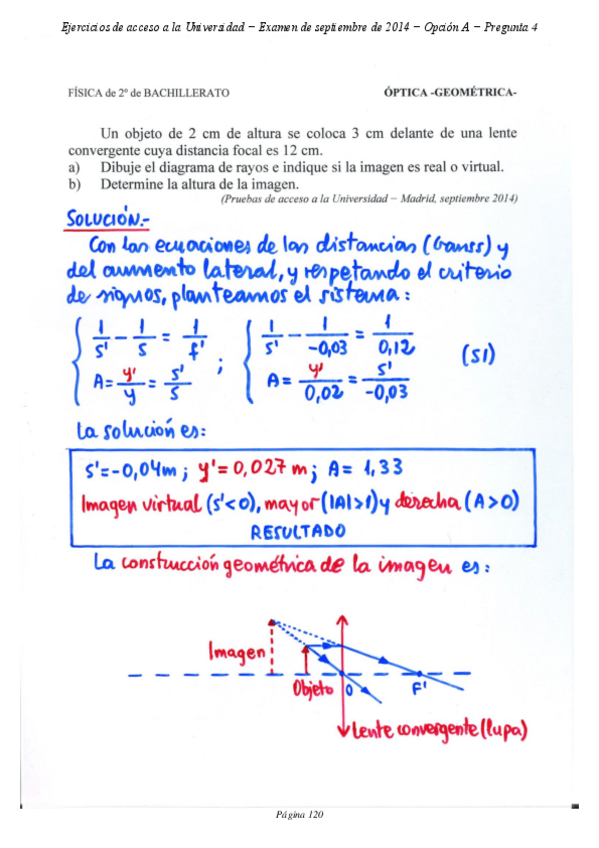 Ejercicios de acceso a la Universidad − Examen de septiembre de 2014 − Opción A − Pregunta 4
FÍSICA de 2º de BACHILLERATO ÓPTICA -GEOMÉTRICA-
Un objeto de 2 cm de altura se coloca 3 cm delante de una lente
convergente cuya distancia focal es 12 cm.
a) Dibuje el diagrama de rayos e indique si la imagen es real o virtual.
b) Determine la altura de la imagen.
(Pruebas de acceso a la Universidad − Madrid, septiembre 2014)
SOLUCIÓN.-
Con las ecuaciones de las distancias (Gauss) y
del aumento lateral, y respetando el criterio
de signos, planteamos el sistema:
1/s' − 1/s = 1/f' ; 1/s' − 1/−0,03 = 1/0,12
A = y'/y = s'/s A = y'/0,02 = s'/−0,03 (SI)
La solución es:
s'=-0,04m ; y'=0,027 m ; A= 1,33
Imagen virtual (s'<0), mayor (|A|>1) y derecha (A>0)
RESULTADO
La construcción geométrica de la imagen es:
Imagen
Objeto O F'
Lente convergente (lupa)
Página 120